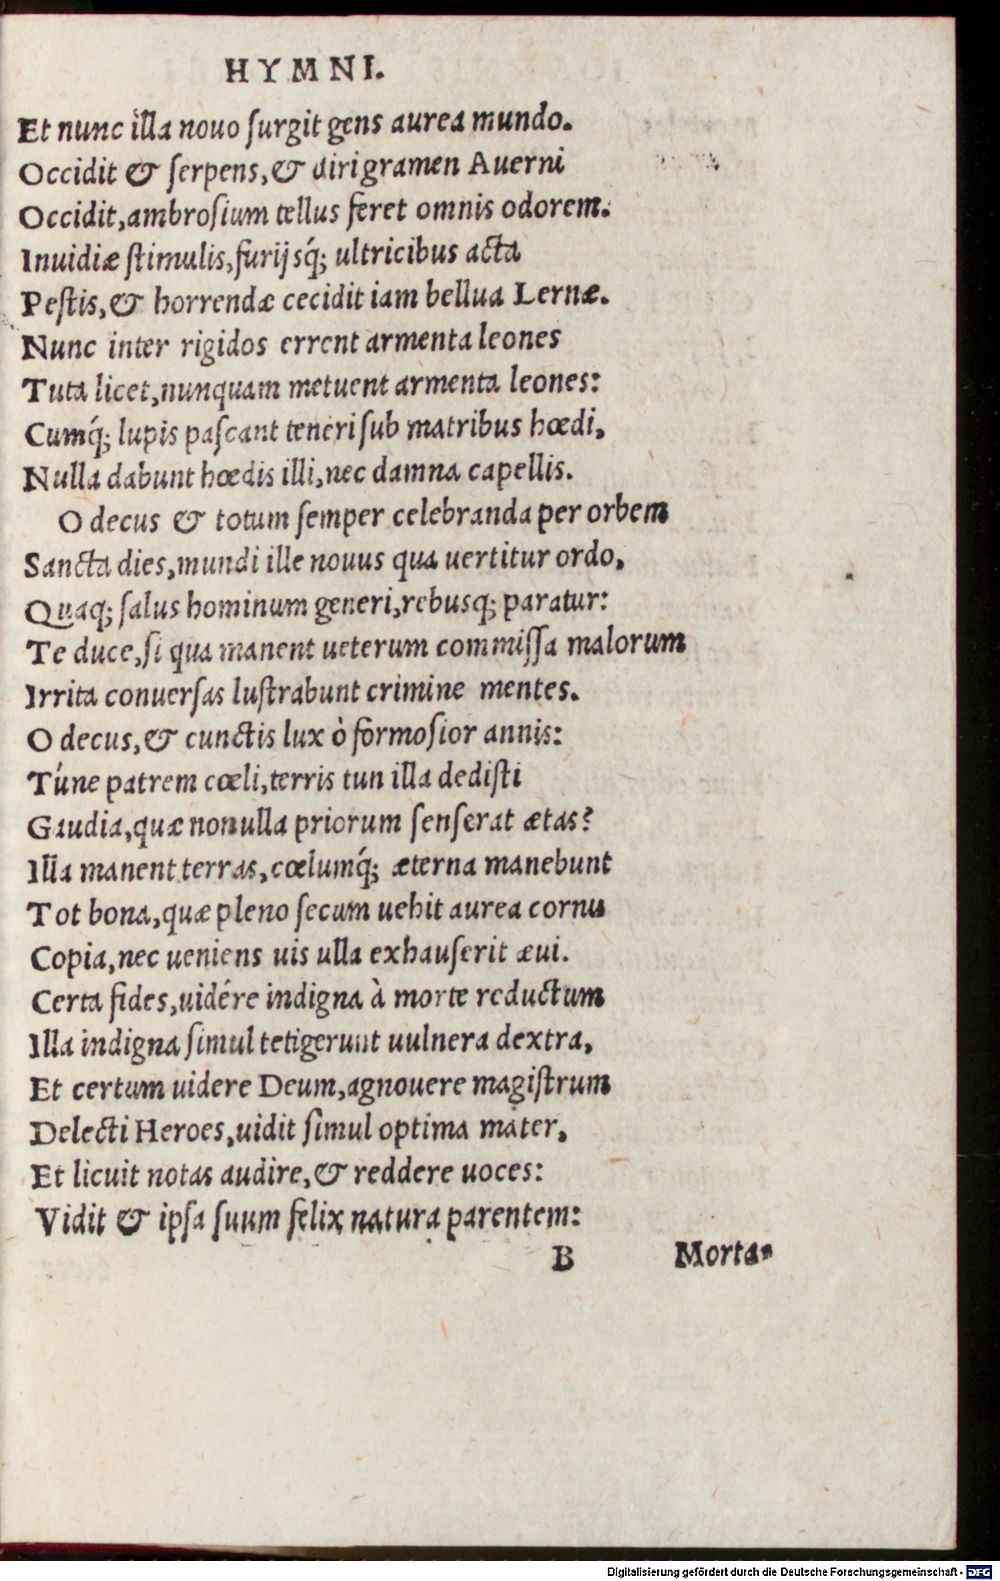 HYMNI.
Et nunc illa nouo ſurgit gens aurea mundo.
Occidit & ſerpens, & diri gramen Auerni
Occidit, ambroſium tellus feret omnis odorem.
Inuidiæ ſtimulis, furijsq́; ultricibus acta
Peſtis, & horrendæ cecidit iam bellua Lernæ.
Nunc inter rigidos errent armenta leones
Tuta licet, nunquam metuent armenta leones:
Cumq́; lupis paſcant teneri ſub matribus hœdi,
Nulla dabunt hœdis illi, nec damna capellis.
O decus & totum ſemper celebranda per orbem
Sancta dies, mundi ille nouus qua uertitur ordo,
Quaq; ſalus hominum generi, rebusq; paratur:
Te duce, ſi qua manent ueterum commiſſa malorum
Irrita conuerſas luſtrabunt crimine mentes.
O decus, & cunctis lux ò formoſior annis:
Túne patrem cœli, terris tun illa dediſti
Gaudia, quæ non ulla priorum ſenſerat ætas?
Illa manent terras, cœlumq́; æterna manebunt
Tot bona, quæ pleno ſecum uehit aurea cornu
Copia, nec ueniens uis ulla exhauſerit æui.
Certa fides, uidére indigna à morte reductum
Illa indigna ſimul tetigerunt uulnera dextra,
Et certum uidere Deum, agnouere magiſtrum
Delecti Heroes, uidit ſimul optima mater,
Et licuit notas audire, & reddere uoces:
Vidit & ipſa ſuum felix natura parentem:
B Morta-
Digitalisierung gefördert durch die Deutsche Forschungsgemeinschaft - DFG